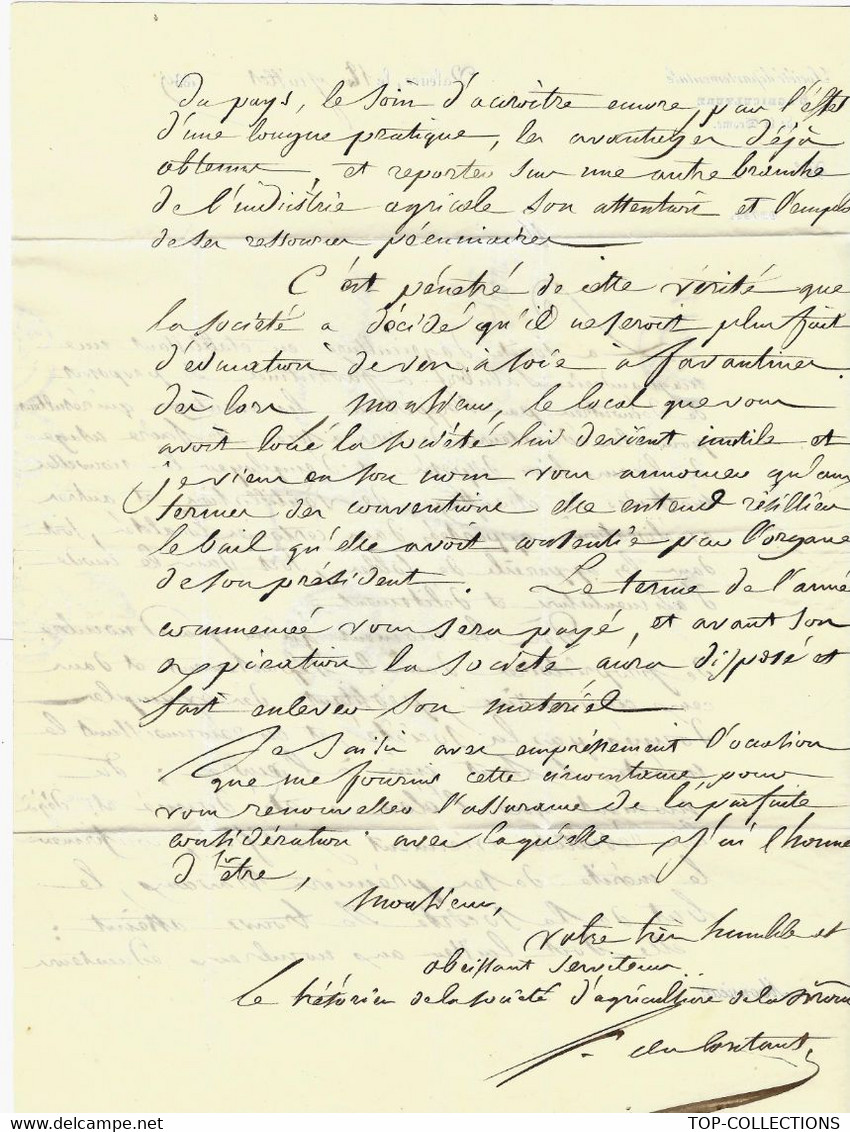 du pays, le soin d'acroître encore, par l'effet
d'une longue pratique, les avantages déjà
obtenus, et reporter sur une autre branche
de l'industrie agricole son attention et l'emploi
de ses ressources pécuniaires
C'est pénétré de cette vérité que
la société a décidé qu'il ne seroit plus fait
d'éducation de vers à soie à faventines.
dès lors Monsieur, le local que vous
avoit loué la société lui devient inutile et
je viens en son nom vous annoncer qu'aux
termes des conventions elle entend résillier
le bail qu'elle avoit contentie par l'organe
de son président. Le terme de l'année
commencée vous sera payé, et avant son
expiration la société aura disposé et
fait enlever son matériel
Je saisis avec empréssement l'ocation
que me fournis cette circonstance pour
vous renouveller l'assurance de la parfaite
considération avec laquelle j'ai l'honneur
d'être,
Monsieur,
votre très humble et
obeissant serviteur
Le trésorier de la société d'agriculture de la Drome
TOP-COLLECTIONS